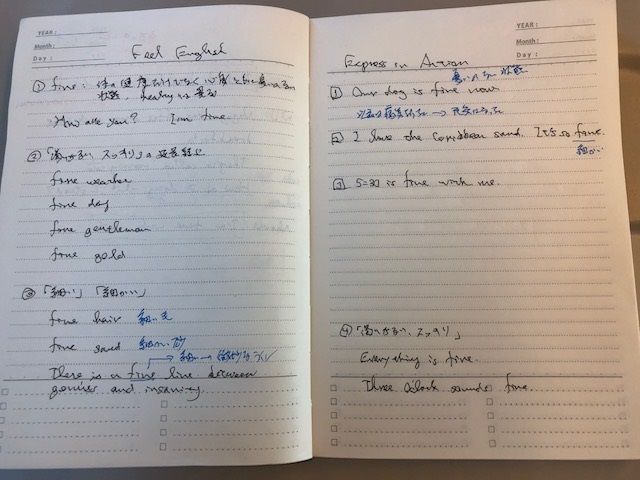 YEAR :
Month :
Day :
Feel English
① fine : 体の健康だけでなく
状態,
How are you? I'm fine
②「満ち足りる, スッキリ」の
fine weather
fine day
fine gentleman
fine gold
③「細い」「細かい」
fine hair 細い毛
fine sand 細かい砂
細い →
There is a fine line between
genius and insanity.
YEAR :
Month :
Day :
Express in Action
状態
① Our dog is fine now
② I love the Caribbean sand. It's so fine.
細かい
③ 5:30 is fine with me.
④「満ち足りる, スッキリ」
Everything is fine.
Three O'clock sounds fine.